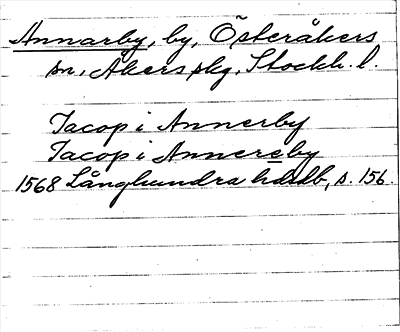 Annarby, by, Österåkers
sn, Åkers skg, Stockh. l.
Jacop i Annerby
Jacop i Annereby
1568 Långhundra hdsdb, s. 156.